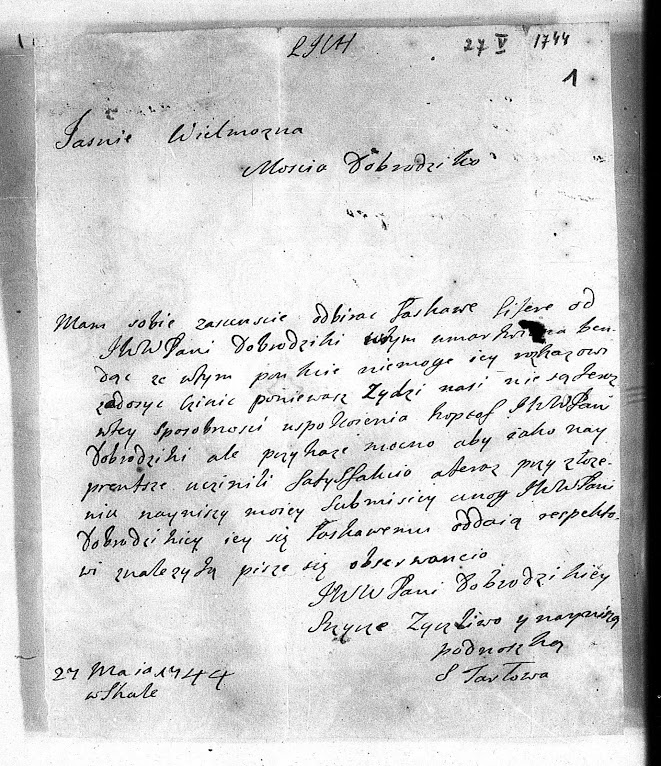 27 V 1744
1
Jasnie Wielmozna
Moscia Dobrodziko
Mam sobie zasczescie odbirac łaskawe od
JWWPani Dobrodziki wtym ben-
dąc ze wtym punkcie niemoge iey roskazowi
zadosyc czinic poniewasz Zydzi nasi nie są teraz
wtey sposobnosci uspokoienia JWWPani
Dobrodziki ale przykaze mocno aby iako nay
prentsze uczinili satysfakcio ateraz przy złoze-
niu nayniszy moiey submisiey unog JWWPani
Dobrodzikiey iey się łaskawemu oddaią respekto-
wi znalezytą pisze się obserwancio
JWWPani Dobrodzikiey
Szyrze Zycżliwo y nayniszą
podnoszką
S Tarłowa
27 Maia 1744
wSkale